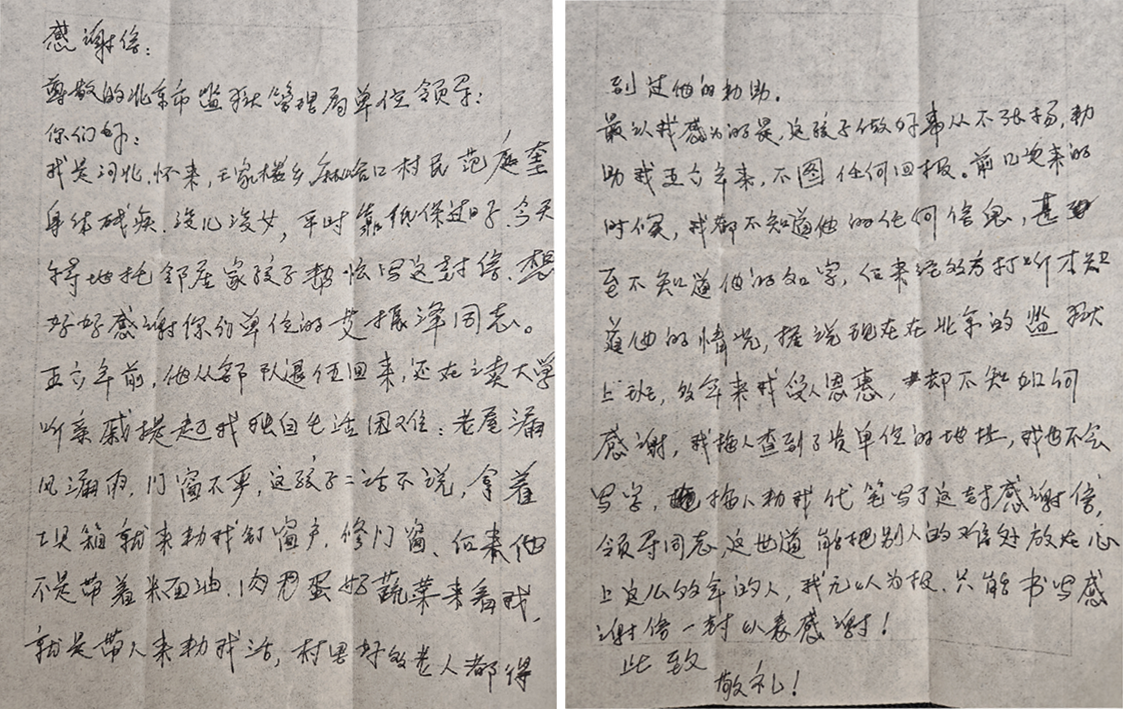 感谢信：
尊敬的北京市监狱管理局单位领导：
你们好：
我是河北，怀来，王家楼乡，麻峪口村民范庭奎
身体残疾．没儿没女，平时靠低保过日子．今天
特地托邻居家孩子帮忙写这封信．想
好好感谢你们单位的艾振泽同志。
五六年前，他从部队退伍回来，还在读大学
听亲戚提起我独自生活困难：老屋漏
风漏雨，门窗不严，这孩子二话不说，拿着
工具箱就来帮我钉窗户，修门窗、后来他
不是带着米面油．肉鸡蛋好蔬菜来看我，
就是带人来帮我活，村里好多老人都得
到过他的帮助。
最让我感动的是，这孩子做好事从不张扬，帮
助我五六年来，不图任何回报。前几次来的
时候，我都不知道他的任何信息，甚
至不知道他的名字，后来经多方打听才知
道他的情况，据说现在在北京的监狱
上班，多年来我受人恩惠，却不知如何
感谢，我托人查到了贵单位的地址，我也不会
写字，托人帮我代笔写了这封感谢信，
领导同志，这世道能把别人的难处放在心
上这么多年的人，我无以为报．只能书写感
谢信一封以表感谢！
此致
敬礼！